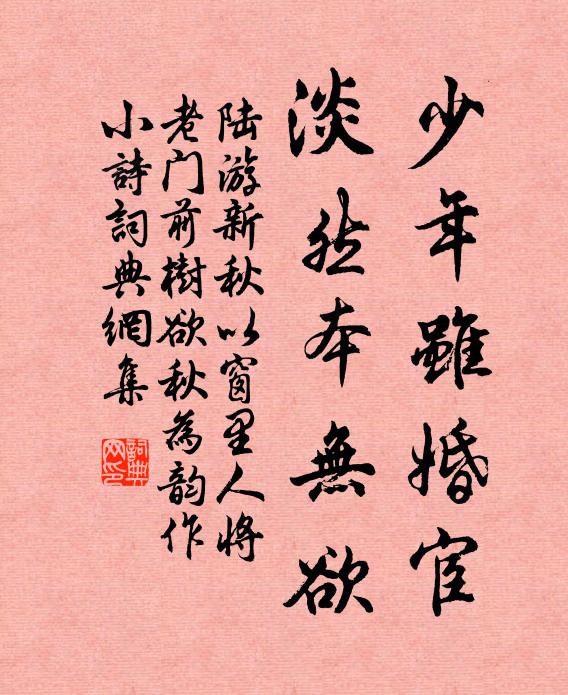 少年雖婚宦
淡然本無欲
陆游新秋以窗里人将
老门前樹欲秋為韵作
小詩詞典網集
詞典网印